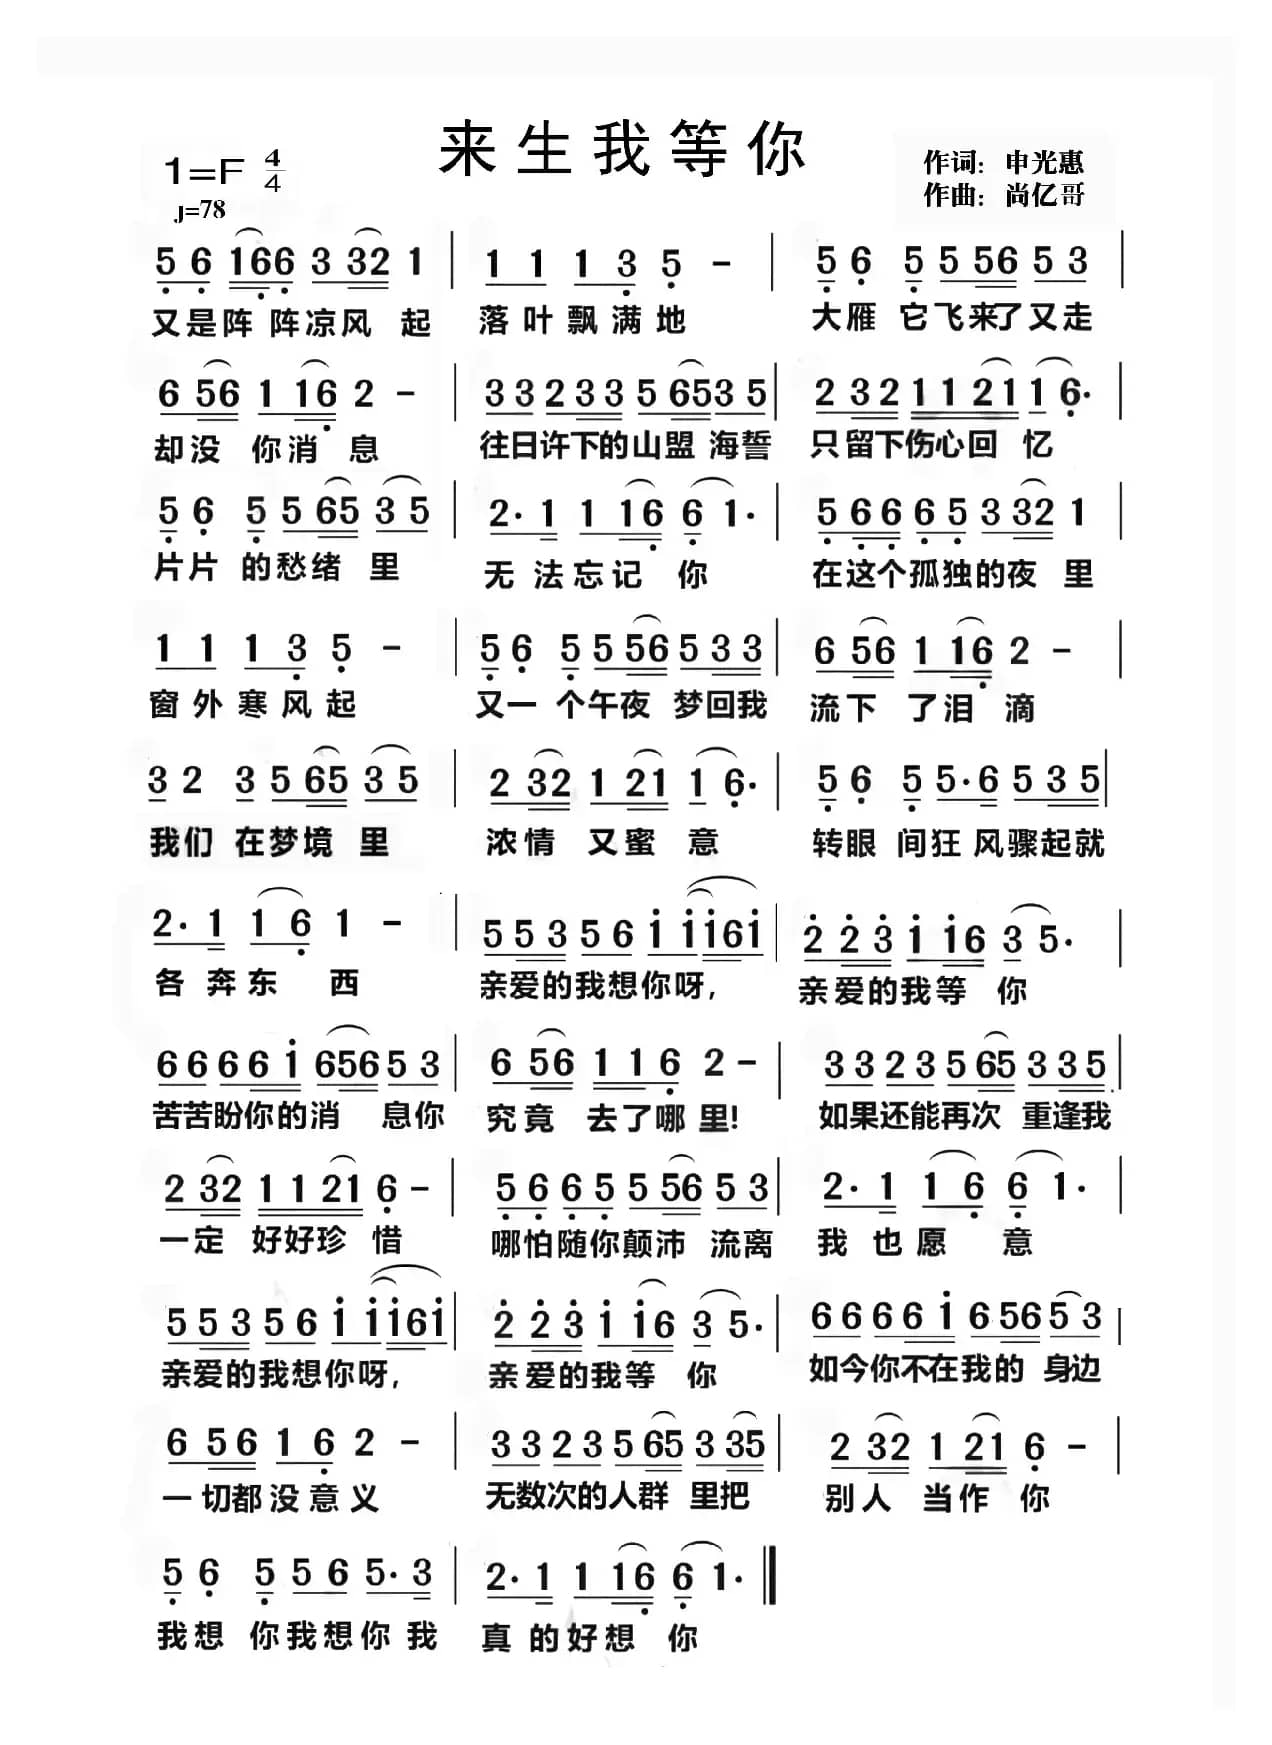 来生我等你
1=F 4/4
作词：申光惠
♩=78
作曲：尚亿哥
5 6 166 3 32 1 | 1 1 1 3 5 - | 5 6 5 5 56 5 3 |
又是阵 阵凉风 起 落叶飘满地 大雁 它飞来了又走
6 56 1 16 2 - | 3 3 2 3 3 5 65 3 5 | 2 32 1 1 21 1 6· |
却没 你消 息 往日许下的山盟 海誓 只留下伤心回 忆
5 6 5 5 65 3 5 | 2· 1 1 16 6 1· | 5 6 6 6 5 3 32 1 |
片片 的愁绪 里 无 法忘记 你 在这个孤独的夜 里
1 1 1 3 5 - | 5 6 5 5 56 5 3 3 | 6 56 1 16 2 - |
窗外寒风起 又一 个午夜 梦回我 流下 了泪 滴
3 2 3 5 65 3 5 | 2 32 1 21 1 6· | 5 6 5 5· 6 5 3 5 |
我们 在梦境 里 浓情 又蜜 意 转眼 间狂 风骤起就
2· 1 1 6 1 - | 5 5 3 5 6 1 1 1 6 1 | 2 2 3 1 16 3 5· |
各 奔东 西 亲爱的我想你呀, 亲爱的我等 你
6 6 6 6 1 6 56 5 3 | 6 56 1 1 6 2 - | 3 3 2 3 5 65 3 3 5 |
苦苦盼你的消 息你 究竟 去了哪里! 如果还能再次 重逢我
2 32 1 1 21 6 - | 5 6 6 5 5 56 5 3 | 2· 1 1 6 6 1· |
一定 好好珍 惜 哪怕随你颠沛 流离 我 也愿 意
5 5 3 5 6 1 1 1 6 1 | 2 2 3 1 16 3 5· | 6 6 6 6 1 6 56 5 3 |
亲爱的我想你呀, 亲爱的我等 你 如今你不在我的 身边
6 5 6 1 6 2 - | 3 3 2 3 5 65 3 35 | 2 32 1 21 6 - |
一切都没意义 无数次的人群 里把 别人 当作 你
5 6 5 5 6 5· 3 | 2· 1 1 16 6 1· ‖
我想 你我想你 我 真 的好想 你